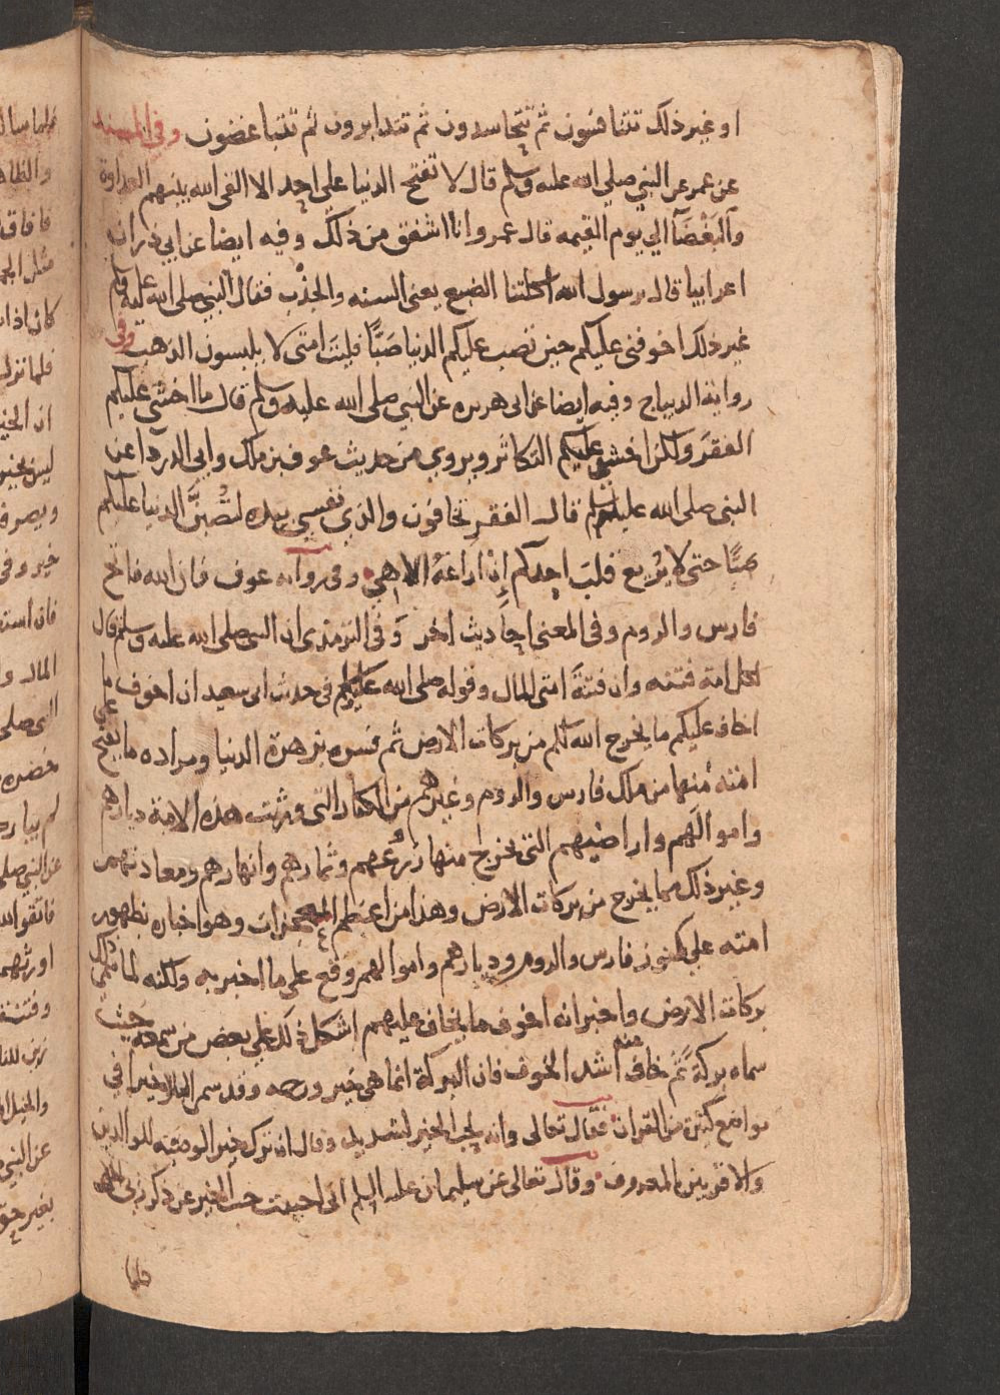 او غير ذلك تتنافسون ثم تتحاسدون ثم تتدابرون ثم تتباغضون وفي المسند
عن عمر عن النبي صلى الله عليه وسلم قال لا تفتح الدنيا على احد الا القى الله بينهم العداوة
والبغضآ الي يوم القيمه قال عمر وانا اشفق من ذلك وفيه ايضا عن ابي ذر ان
اعرابيا قال يرسول الله اكلتنا الضبع يعني السنه والجدب فقال النبي صلى الله عليه وسلم
غير ذلك اخوفني عليكم حين تصب عليكم الدنيا صبًّا فليتَ امتى لا يلبسون الذهب وفي
رواية الديباج وفيه ايضا عن ابى هريره عن النبي صلى الله عليه وسلم قال ما اخشى عليكم
الفقرَ ولكن اخشى عليكم التكاثر ويروي من حديث عوف بن ملك وابي الدردآ عن
النبى صلى الله عليه وسلم قال الفقر تخافون والذي نفسي بيده لتُصَبَّنَّ الدنيا عليكم
صبًّا حتى لا يزيع قلبَ احدكم اِن ازاغهُ الا هي وفى رواية عوف فان الله فاتح
فارس والروم وفى المعنى احاديث اخر وَفى الترمذى ان النبى صلى الله عليه وسلم قال
لكل امة فتنه وان فتنةَ امتى المال وقوله صلى الله عليه وسلم فى حديث ابى سعيد ان اخوف ما
اخاف عليكم ما يخرج الله لكم من بركات الارض ثم فسره بزهرة الدنيا ومراده ما يفتح علي
امته منها من ملك فارس والروم وغيرهم من الكفار التى ورثت هذه الامة ديارهم
واموالَهم واراضيهم التى يخرج منها زرُعهم وثمارهم وانهارهم ومعادنهم
وغير ذلك مما يخرج من بركات الارض وهذا من اعظم المعجزات وهو اخباره بظهور
امته علي كنوز فارس والروم وديارهم واموالهم ووقع على ما اخبر به ولكنه لما سمي ذلك
بركات الارض واخبر انه اخوف ما يخاف عليهم اشكل ذلك علي بعض من سمعه حيث
سماه بركةً ثم خاف منه اشد الخوف فان البركة انما هى خير ورحمه وقد سمى المال خيرا فى
مواضع كثيرة من القران فقال تعالى وانه لحب الخير لشديد وقال ان ترك خيرا الوصيه للوالدين
والاقربين بالمعروف وقال تعالى عن سليمان عليه السلم انى احببت حب الخير عن ذكر ربى